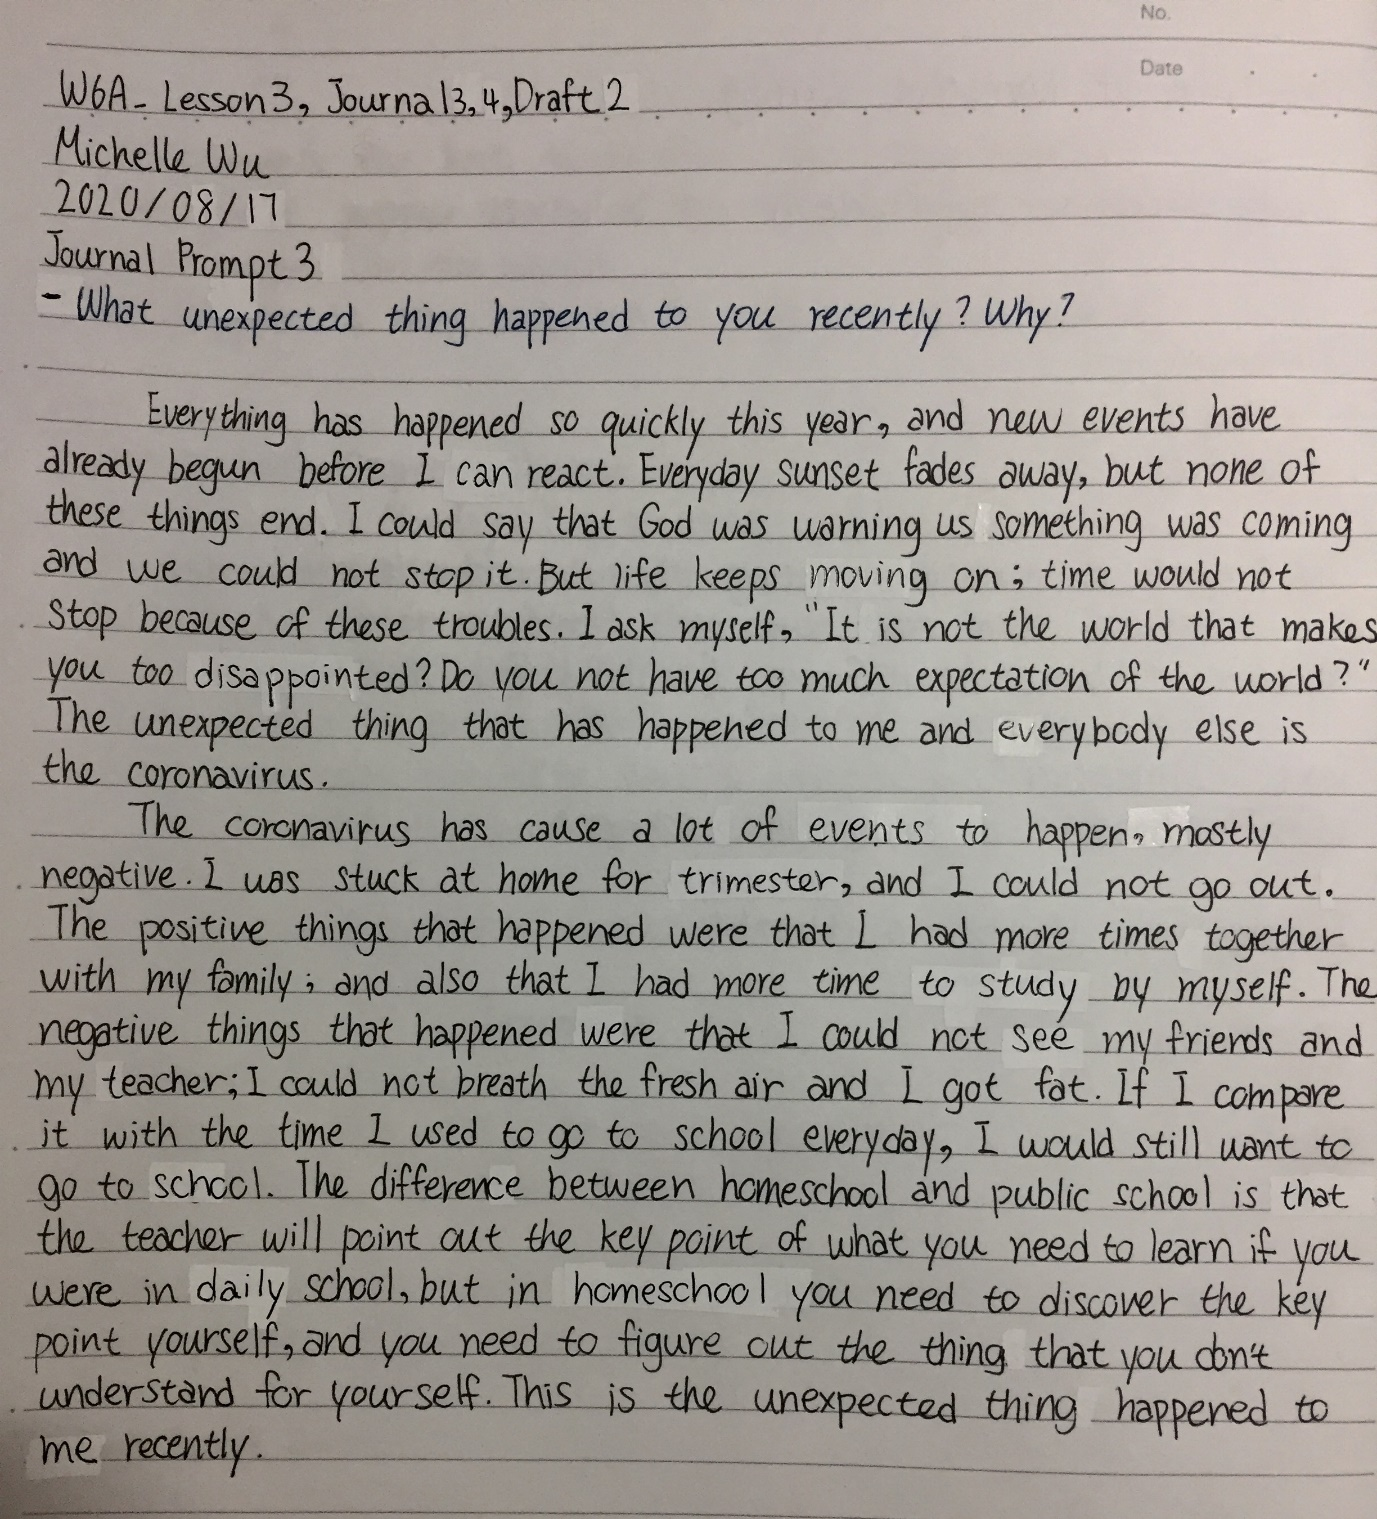 No.
Date
W6A- Lesson3, Journal3,4,Draft 2
Michelle Wu
2020/08/17
Journal Prompt 3
- What unexpected thing happened to you recently? Why?
Everything has happened so quickly this year, and new events have
already begun before I can react. Everyday sunset fades away, but none of
these things end. I could say that God was warning us something was coming
and we could not stop it. But life keeps moving on; time would not
stop because of these troubles. I ask myself, "It is not the world that makes
you too disappointed? Do you not have too much expectation of the world?"
The unexpected thing that has happened to me and everybody else is
the coronavirus.
The coronavirus has cause a lot of events to happen, mostly
negative. I was stuck at home for trimester, and I could not go out.
The positive things that happened were that I had more times together
with my family; and also that I had more time to study by myself. The
negative things that happened were that I could not see my friends and
my teacher; I could not breath the fresh air and I got fat. If I compare
it with the time I used to go to school everyday, I would still want to
go to school. The difference between homeschool and public school is that
the teacher will point out the key point of what you need to learn if you
were in daily school, but in homeschool you need to discover the key
point yourself, and you need to figure out the thing that you don't
understand for yourself. This is the unexpected thing happened to
me recently.